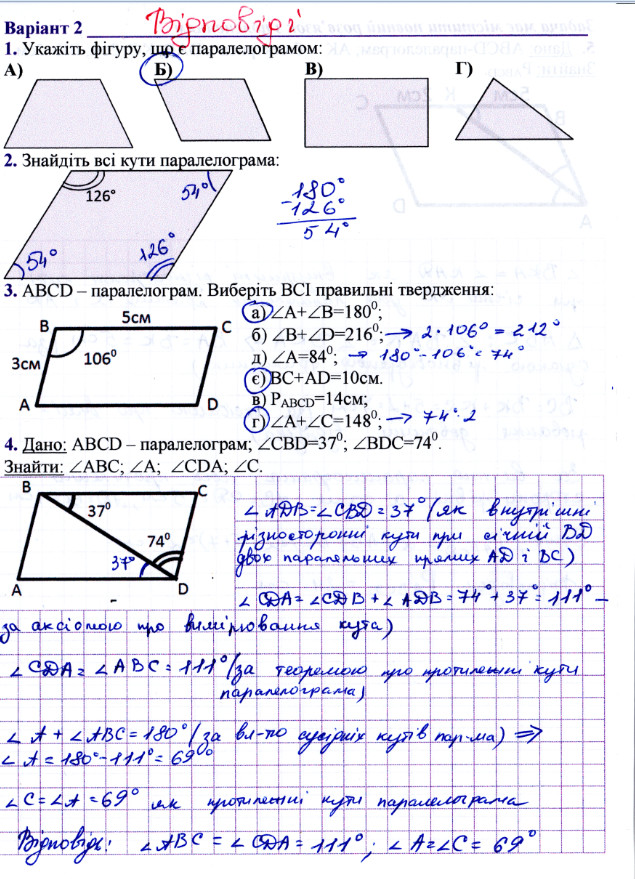 Варіант 2 Відповіді
1. Укажіть фігуру, що є паралелограмом:
А) Б) В) Г)
2. Знайдіть всі кути паралелограма:
126° 54°
54° 126°
180°
-126°
54°
3. ABCD – паралелограм. Виберіть ВСІ правильні твердження:
B 5см C
3см 106⁰
A D
а) ∠A+∠B=180⁰;
б) ∠B+∠D=216⁰; → 2·106° = 212°
д) ∠A=84⁰; → 180°-106°=74°
є) BC+AD=10см.
в) P_ABCD=14см;
г) ∠A+∠C=148⁰. → 74°·2
4. Дано: ABCD – паралелограм; ∠CBD=37⁰; ∠BDC=74⁰.
Знайти: ∠ABC; ∠A; ∠CDA; ∠C.
B C
37⁰
74⁰
37°
A D
∠ADB=∠CBD=37° (як внутрішні
різносторонні кути при січній BD
двох паралельних прямих AD і BC)
∠CDA=∠CDB+∠ADB=74°+37°=111° –
за аксіомою про вимірювання кута)
∠CDA=∠ABC=111° (за теоремою про протилежні кути
паралелограма)
∠A+∠ABC=180° (за вл-тю сусідніх кутів пар-ма) ⇒
∠A=180°-111°=69°
∠C=∠A=69° як протилежні кути паралелограма
Відповідь: ∠ABC=∠CDA=111°; ∠A=∠C=69°